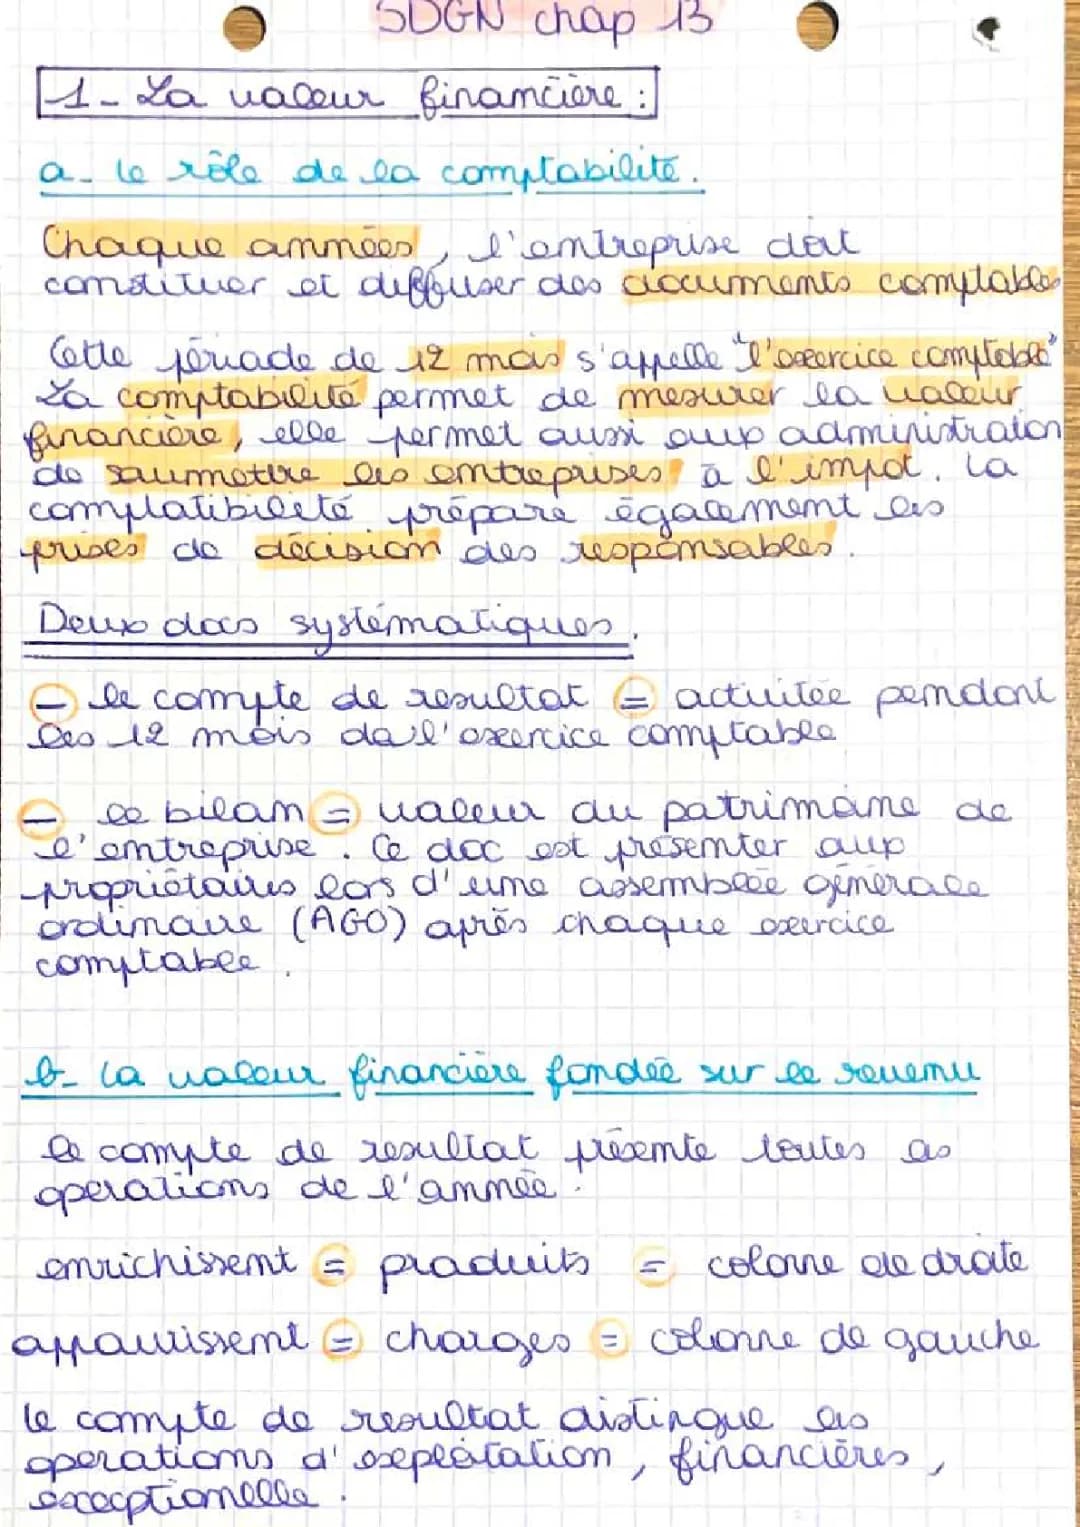 SDGN chap 13
1- La valeur financière :
a- le rôle de la comptabilité.
Chaque années, l'entreprise doit
constituer et diffuser des documents comptables
Cette période de 12 mois s'appelle "l'exercice comptable"
La comptabilité permet de mesurer la valeur
financière, elle permet aussi aux administration
de soumettre les entreprises à l'impot. La
complatibilité prépare également les
prises de décision des responsables.
Deux docs systématiques.
- le compte de resultat = activitée pendant
les 12 mois de l'exercice comptable
- le bilan = valeur du patrimoine de
l'entreprise. Ce doc est présenter aux
propriétaires lors d'une assemblée générale
ordinaire (AGO) après chaque exercice
comptable.
b- La valeur financière fondée sur le revenu
le compte de resultat présente toutes les
operations de l'année.
enrichissent = produits = colonne de droite
appauvrissent = charges = colonne de gauche
le compte de resultat distingue les
operations d'exploitation, financières,
exceptionelle.